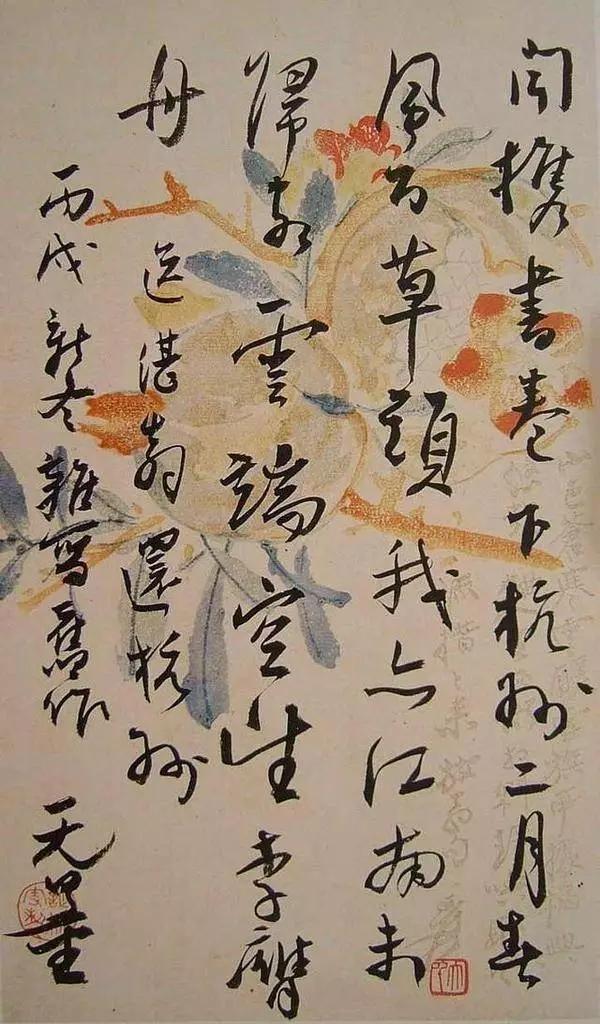 聞攜書卷下杭州二月春
風百草頭我亦江南未
歸客雲端空望李膺
舟 送湛翁還杭州
丙戌新冬雜寫舊作 无量